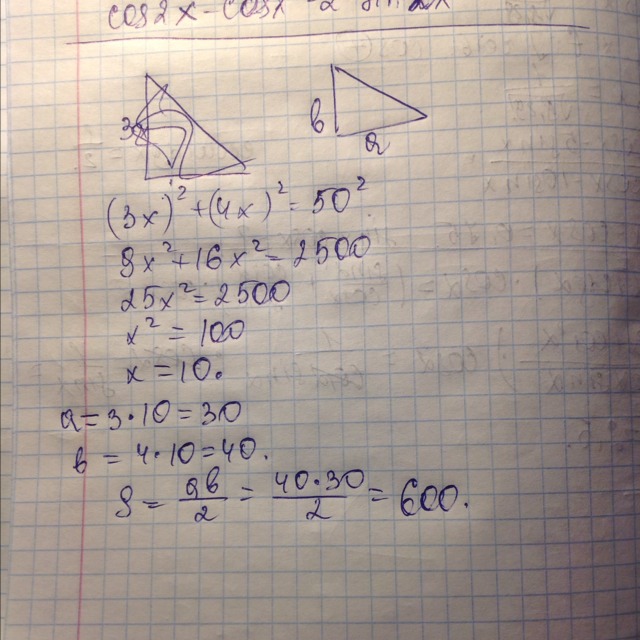 cos2x - cosx - 2 sin2x
3x
в
а
(3x)² + (4x)² = 50².
9x² + 16x² = 2500
25x² = 2500
x² = 100
x = 10.
a = 3·10 = 30
в = 4·10 = 40.
S = ав/2 = 40·30/2 = 600.